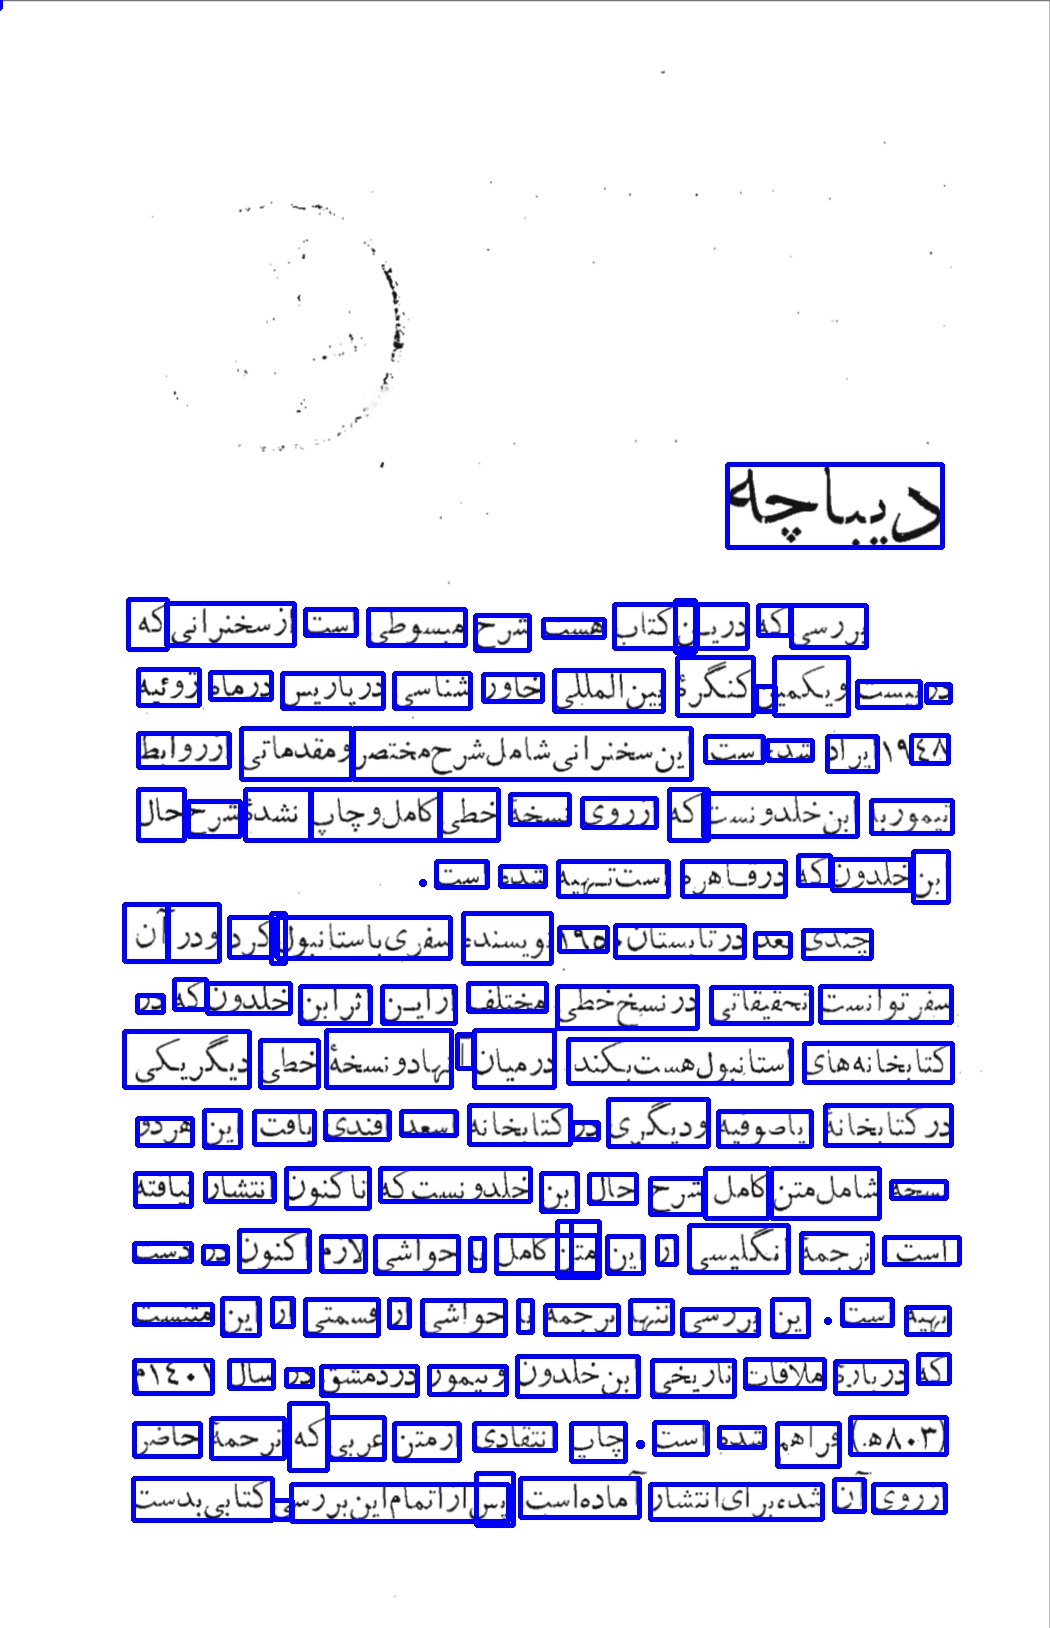 دیباچه
بررسی که در این کتاب هست شرح مبسوطی است از سخنرانی که
در بیست و یکمین کنگرهٔ بین‌المللی خاورشناسی در پاریس در ماه ژوئیه
۱۹٤۸ ایراد شده است این سخنرانی شامل شرح مختصر و مقدماتی از روابط
تیمور با ابن خلدونست که از روی نسخهٔ خطی کامل و چاپ نشدهٔ شرح حال
ابن خلدون که در قاهره است تهیه شده است .
چندی بعد در تابستان ۱۹۵۰ نویسنده سفری باستانبول کرد و در آن
سفر توانست تحقیقاتی در نسخ خطی مختلف از این اثر ابن خلدون که در
کتابخانه‌های استانبول هست بکند در میان آنها دو نسخهٔ خطی دیگر یکی
در کتابخانهٔ ایاصوفیه و دیگری در کتابخانه اسعد افندی یافت این هر دو
نسخه شامل متن کامل شرح حال ابن خلدونست که تاکنون انتشار نیافته
است ترجمهٔ انگلیسی از این متن کامل با حواشی لازم اکنون در دست
تهیه است . این بررسی تنها ترجمه با حواشی از قسمتی از این متنست
که دربارهٔ ملاقات تاریخی ابن خلدون و تیمور در دمشق در سال ۱٤۰۱م
(۸۰۳ه.) فراهم شده است . چاپ انتقادی از متن عربی که ترجمهٔ حاضر
از روی آن شده برای انتشار آماده است پس از اتمام این بررسی کتابی بدست